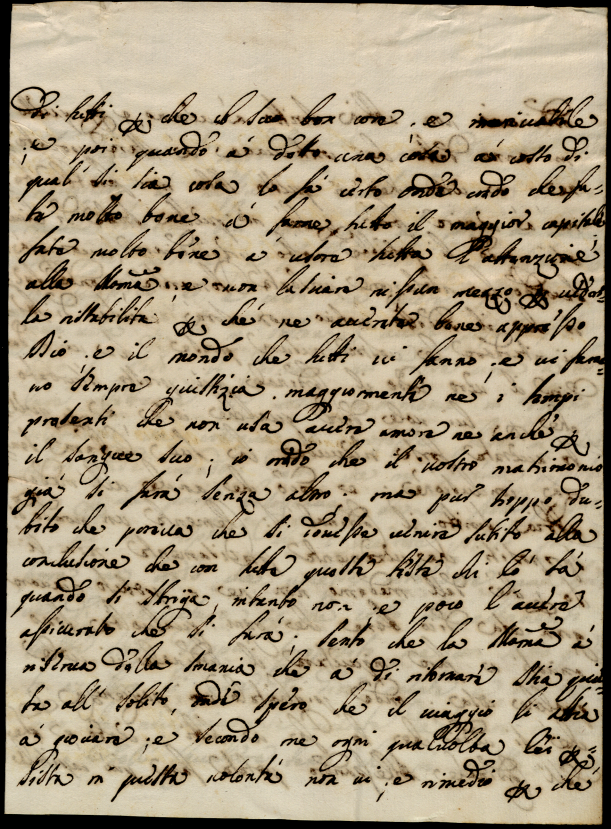 di tutti, per che il suo bon core, e mericabile
; e poi quando à detto una cosa a costo di
qual si sia cosa la fà certo onde credo che fa-
rà molto bene à farne tutto il maggior capitale
fate molto bene a usare tutta l'attenzione
alla Momã e non lasiare nissun mezzo per veder-
la ristabilita per che ne averete bene appresso
Dio, e il mondo che tutti vi fanno, e vi fara-
no sempre giustizia, maggiormente ne i tempi
presenti che non usa avere amore ne anche per
il sangue suo; io credo che il vostro matrimonio
già si farà senza altro, ma pur troppo du-
bito che poriva che si dovesse venire subito alla
conclusione che con tute queste teste chi lo sà
quando si sbriga, intanto non e poco l'avere
assicurato che si farà; sento che la Momã à
riserva della smania che a di ritornare stia quie-
ta all' solito, onde spero che il viaggio li abia
à giovare; e secondo me ogni qualvolta lei per-
sista in questa volontà non vi, e rimedio per che